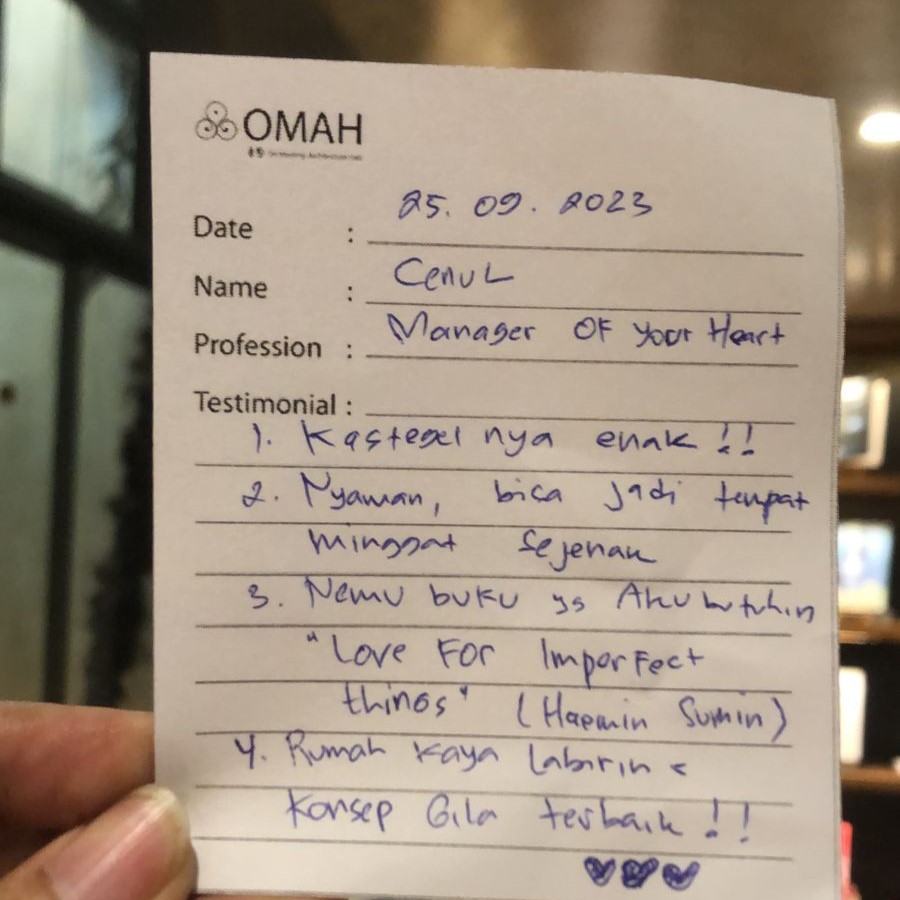 OMAH
Date : 25. 09. 2023
Name : Cenul
Profession : Manager OF your Heart
Testimonial :
1. Kastegel nya enak !!
2. Nyaman, bisa jadi tempat
minggat sejenak
3. Nemu buku yg Aku butuhin
"Love For Imporfect
things" (Haemin Sumin)
4. Rumah kaya Labirin <
Konsep Gila terbaik !!